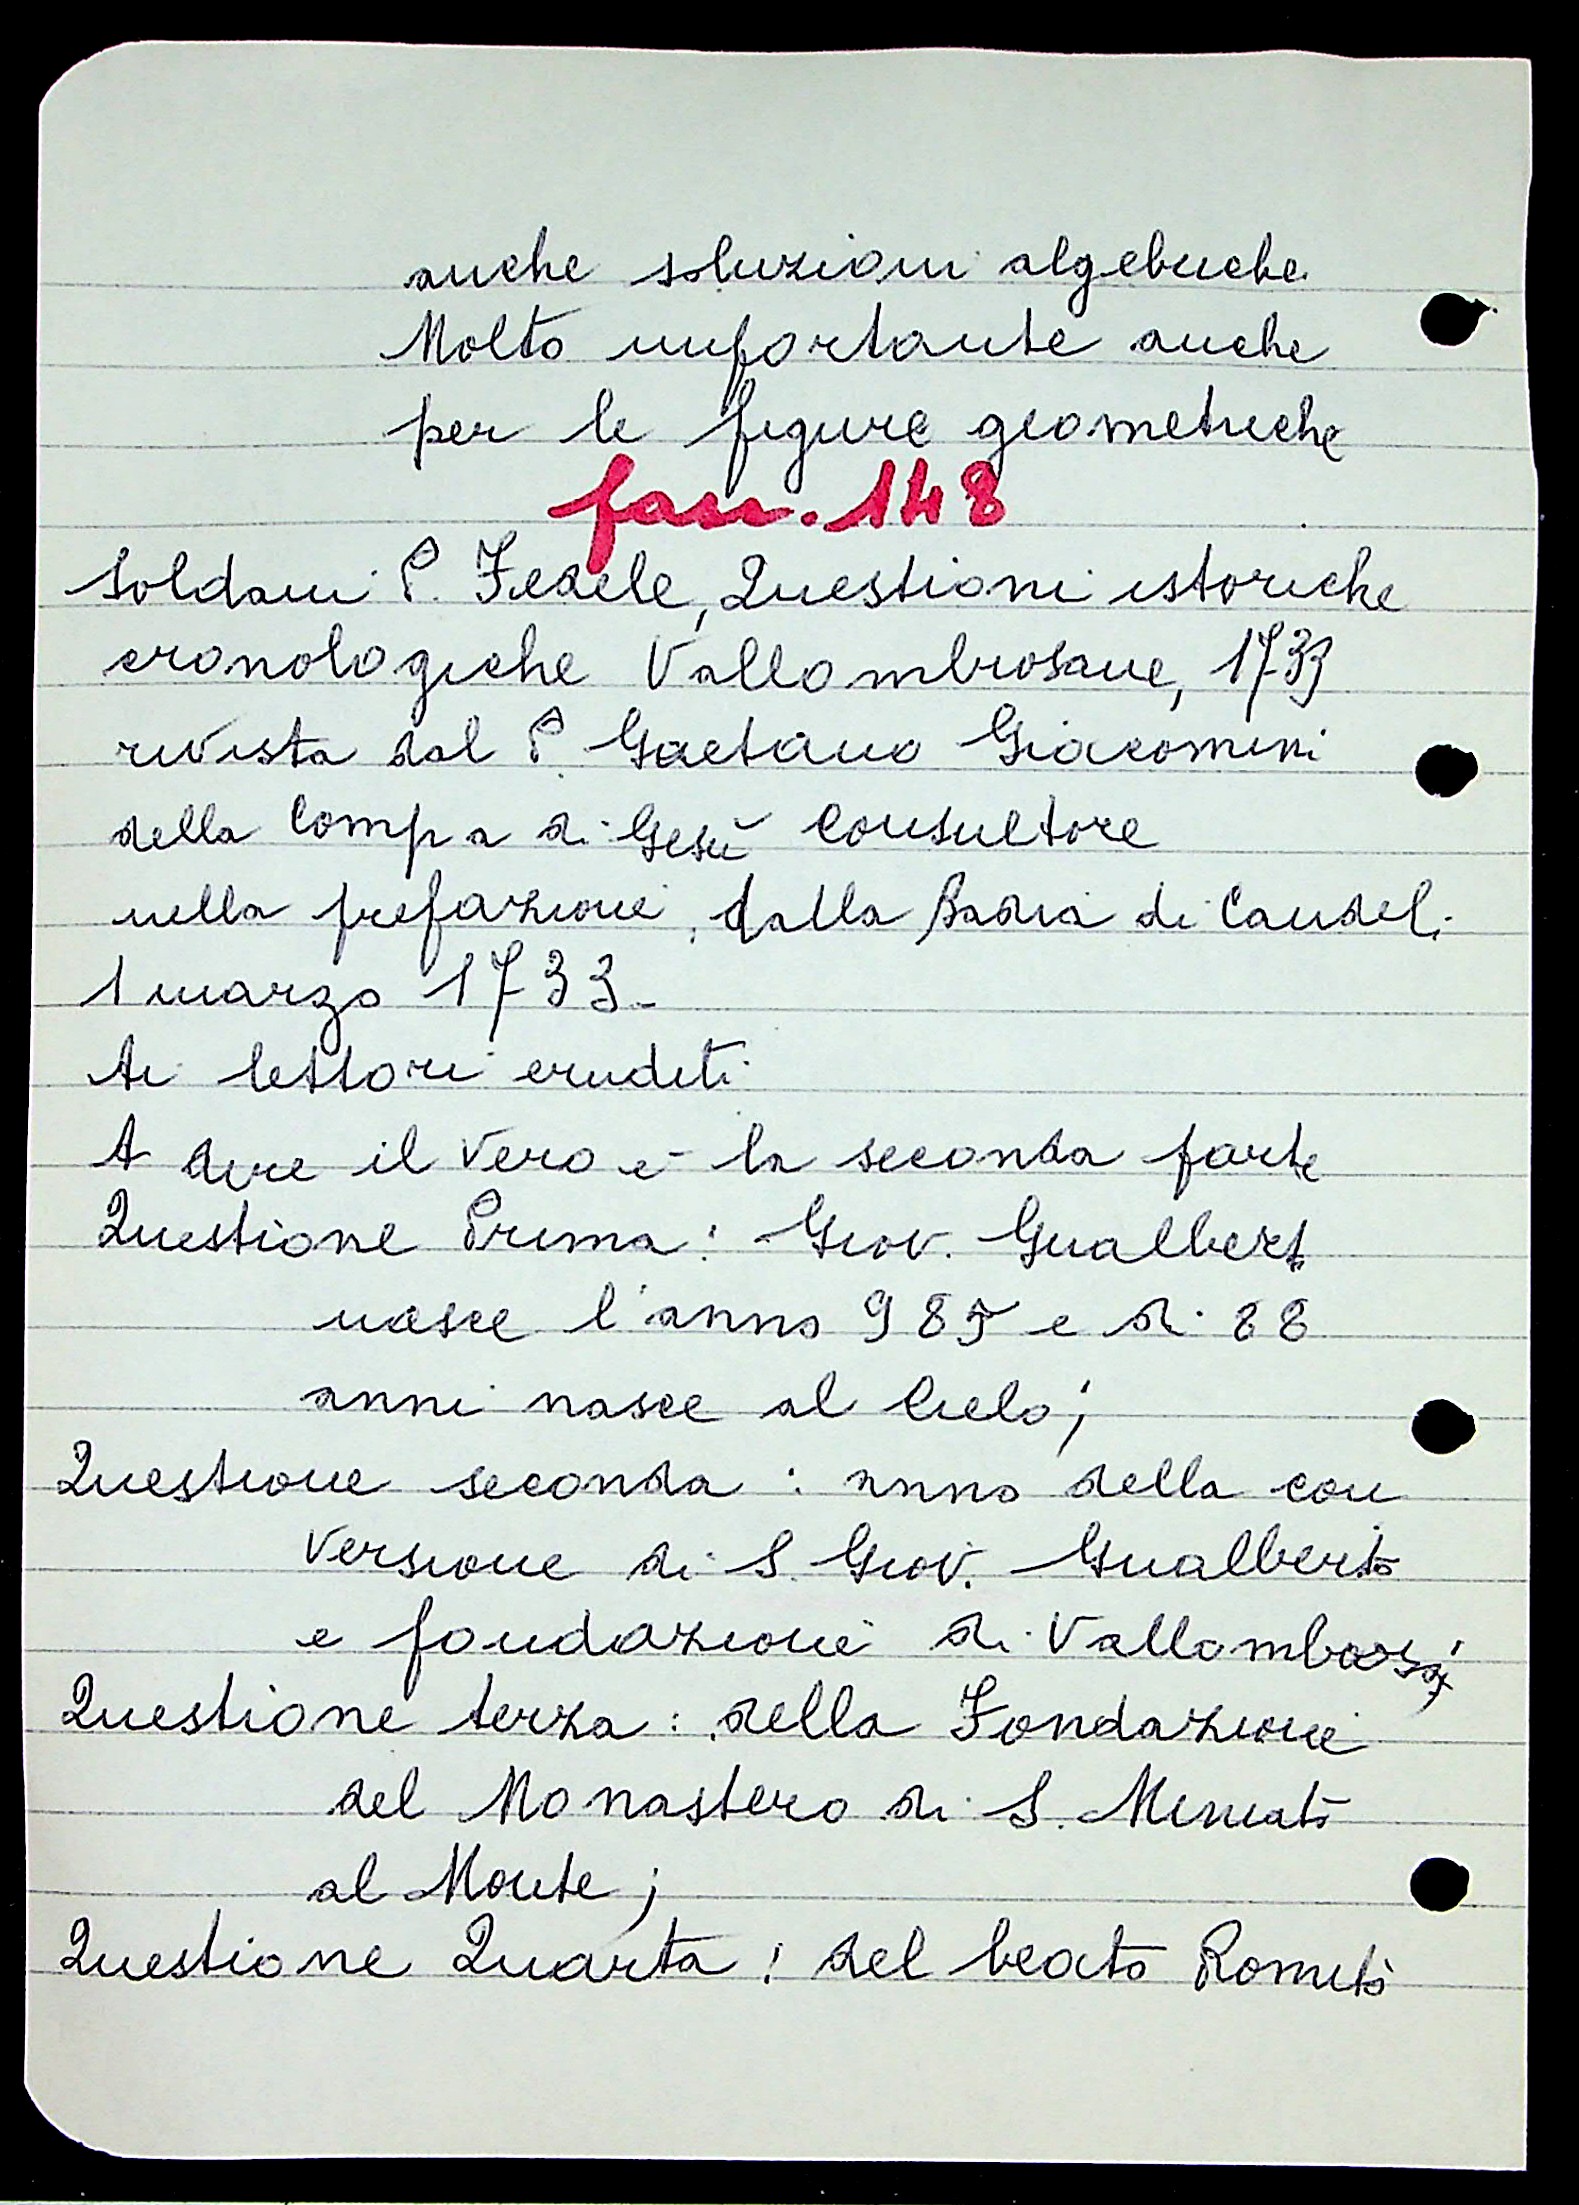 anche soluzioni algebriche
Molto importante anche
per le figure geometriche
fasc. 148
Soldani P. Fedele, Questioni istoriche
cronologiche Vallombrosane, 1733
rivista dal P. Gaetano Giacomini
della Comp a di Gesù Consultore
nella prefazione, dalla Badia di Candeli
1 marzo 1733.
Ai lettori eruditi
A dire il vero è la seconda parte
Questione Prima: Giov. Gualberto
nasce l'anno 985 e di 88
anni nasce al Cielo;
Questione seconda: anno della con
versione di S. Giov. Gualberto
e fondazione di Vallombrosa;
Questione terza: della Fondazione
del Monastero di S. Miniato
al Monte;
Questione Quarta: del beato Romito